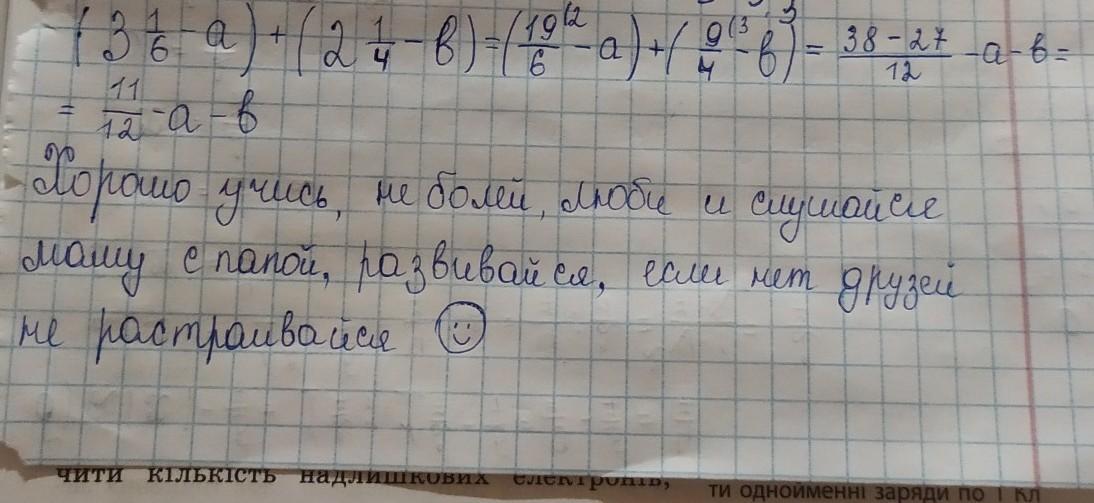 (3 1/6 - а) + (2 1/4 - в) = (19/6 (2 - а) + (9/4 (3 - в) = 38 - 27/12 - а - в =
= 11/12 - а - в
Хорошо учись, не болей, люби и слушайся
маму с папой, развивайся, если нет друзей
не растраивайся
чити кількість надлишкових електронів,
ти однойменні заряди по 1 Кл